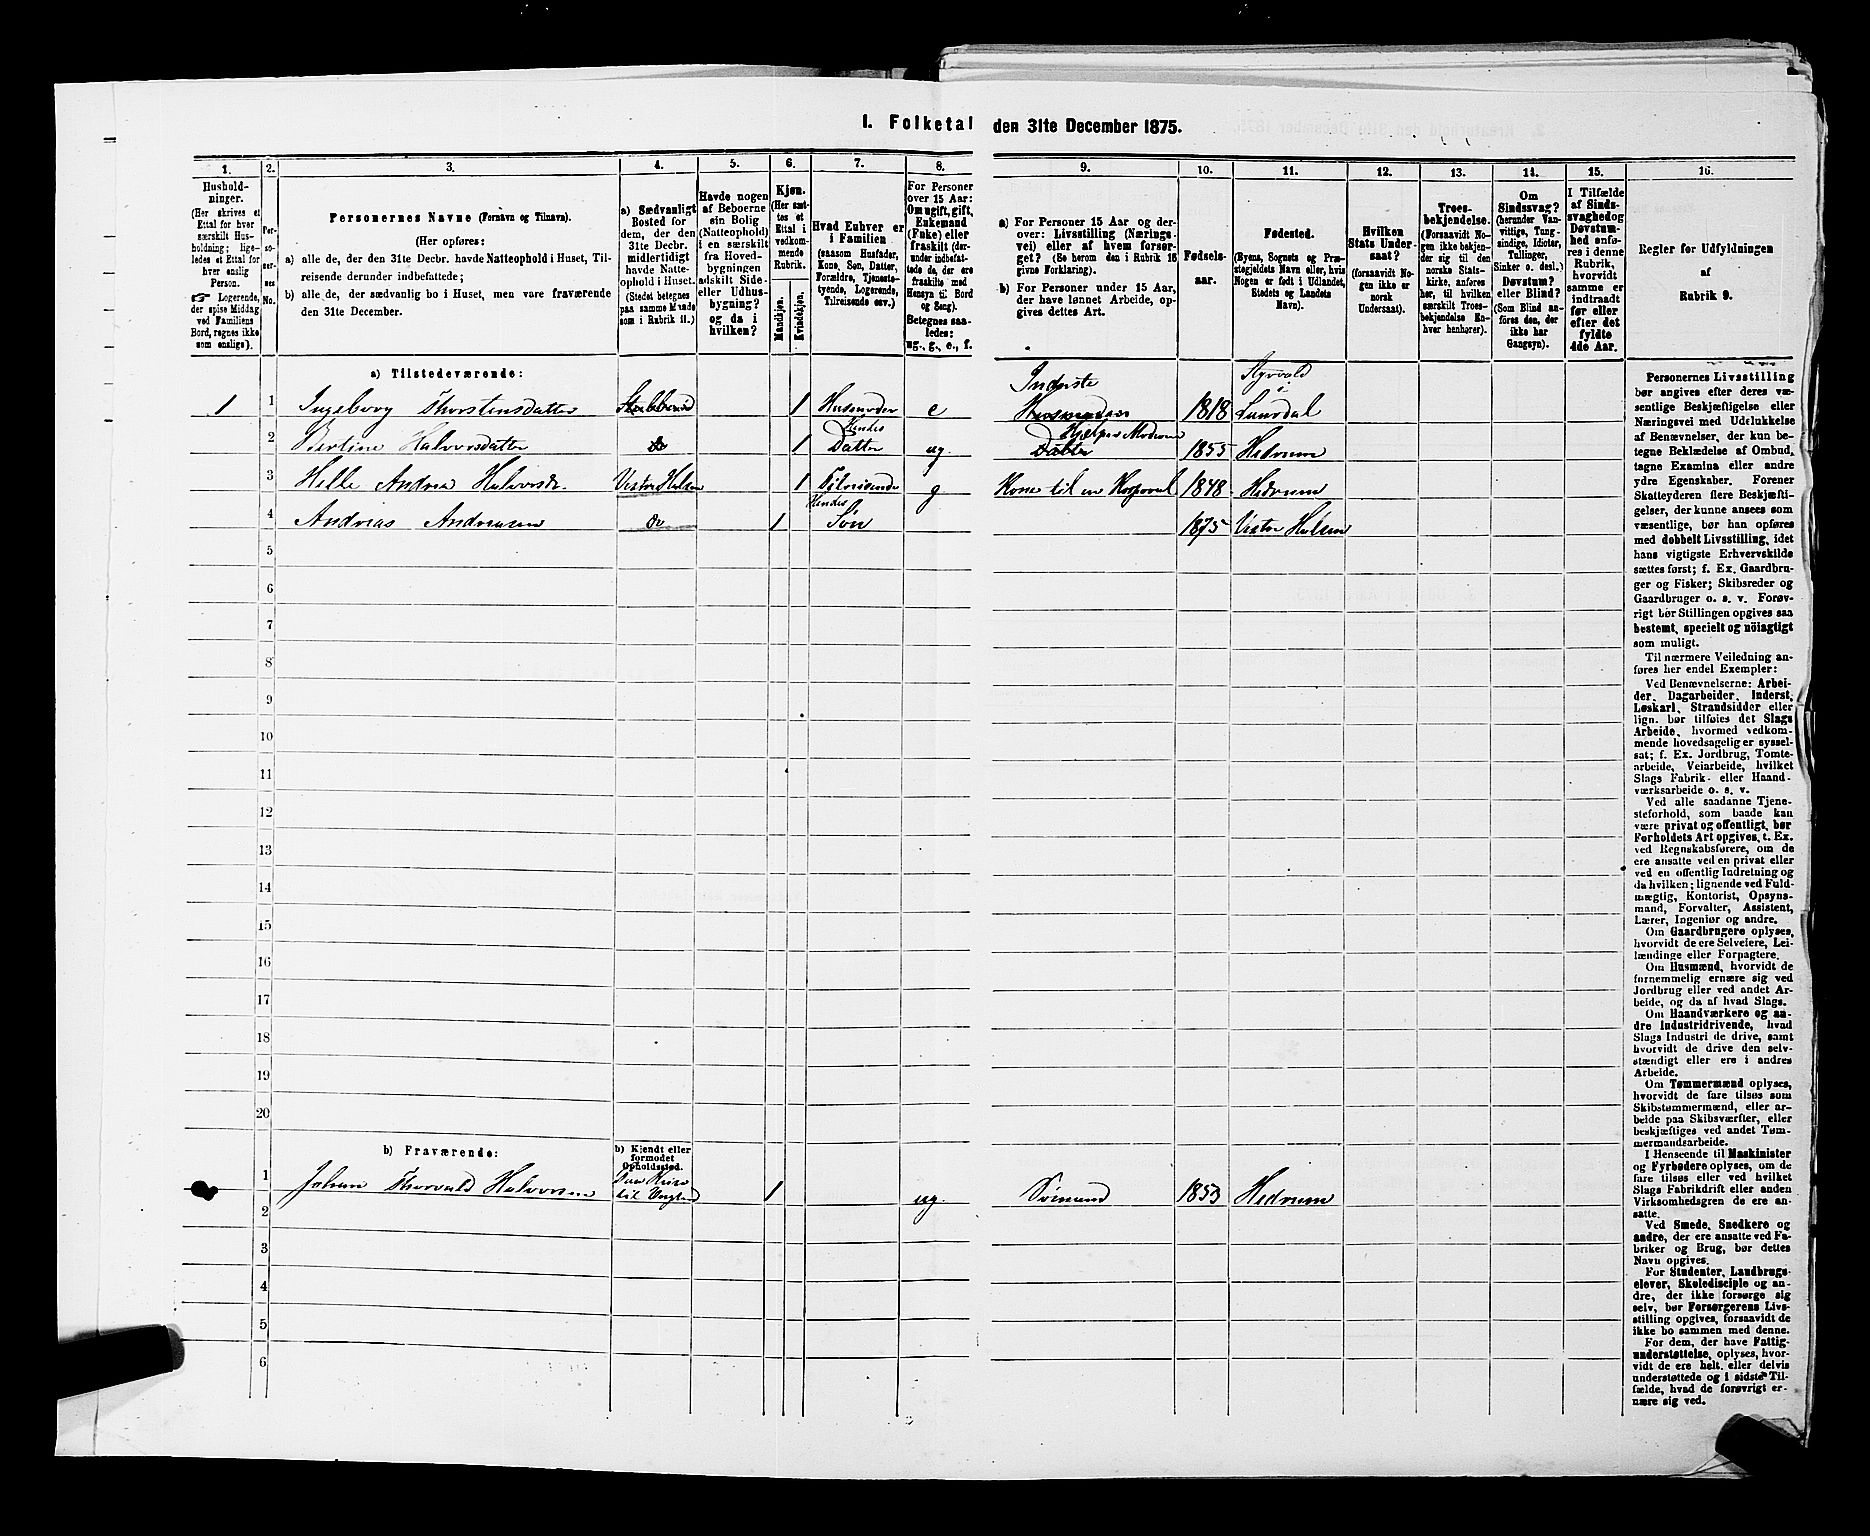 I. Folketal den 31te December 1875.
1. 2. 3. 4. 5. 6. 7. 8. 9. 10. 11. 12. 13. 14. 15. 16.
Hushold-
ninger.
(Her skrives et
Ettal for hver
særskilt Hus-
holdning; lige-
ledes et Ettal
for hver
enslig
Person.
☞ Logerende,
der spise Middag
ved Familiens
Bord, regnes ikke
som enslige).
Per-
so-
ner-
nes
No.
Personernes Navne (Fornavn og Tilnavn).
(Her opføres:
a) alle de, der den 31te Decbr. havde Natteophold i Huset, Til-
reisende derunder indbefattede;
b) alle de, der sædvanlig bo i Huset, men vare fraværende
den 31te December.
a) Sædvanligt
Bosted for
dem, der den
31te Decbr.
midlertidigt
havde Natte-
ophold i Huset.
(Stedet betegnes
paa samme Maade
som i Rubrik 11.)
Havde nogen
af Beboerne
sin Bolig
(Natteophold)
i en særskilt
fra Hoved-
bygningen
adskilt Side-
eller Udhus-
bygning?
og da i
hvilken?
Kjøn.
(Her sæt-
tes et
Ettal i
vedkom-
mende
Rubrik.
Mandkjøn.
Kvindekjøn.
Hvad Enhver er
i Familien
(saasom Husfader,
Kone, Søn, Datter,
Forældre, Tjeneste-
tyende, Logerende,
Tilreisende osv.)
For Personer
over 15 Aar:
Om ugift, gift,
Enkemand
(Enke) eller
fraskilt (der-
under indbefat-
tede de, der ere
fraskilte med
Hensyn til Bord
og Seng).
Betegnes saa-
ledes:
ug., g., e., f.
a) For Personer 15 Aar og der-
over: Livsstilling (Nærings-
vei) eller af hvem forsør-
get? (Se herom den i Rubrik 16
givne Forklaring).
b) For Personer under 15 Aar,
der have lønnet Arbeide, op-
gives dettes Art.
Fødsels-
aar.
Fødested.
(Byens, Sognets og Præ-
stegjeldets Navn eller, hvis
Nogen er født i Udlandet,
Stedets og Landets
Navn).
Hvilken
Stats Under-
saat?
(forsaavidt No-
gen ikke er
norsk
Undersaat).
Troes-
bekjendelse.
(Forsaavidt No-
gen ikke bekjen-
der sig til den
norske Stats-
kirke, anføres
her, til hvilken
særskilt Troes-
bekjendelse En-
hver henhører).
Om
Sindssvag?
(herunder Van-
vittige, Tung-
sindige, Idioter,
Tullinger,
Sinker o. desl.)
Døvstum?
eller Blind?
(Som Blind an-
føres den, der
ikke har
Gangsyn).
I Tilfælde
af Sinds-
svaghed og
Døvstum-
hed anfø-
res i denne
Rubrik,
hvorvidt
samme er
indtraadt
før eller
efter det
fyldte
4de Aar.
Regler for Udfyldningen
af
Rubrik 9.
a) Tilstedeværende:
Inderste
1 1 Ingeborg Thorstensdatter 1 Husmoder e 1818 Laurdal
Hendes Hjælper Moderen
2 Bertine Halvorsdatter do 1 Datter ug Datter 1855 Hedrum
3 Helle Andrea Halvorsdr. Vestre Halsen 1 Tilreisende g Kone til en Korporal 1848 Hedrum
Hendes
4 Andreas Andreasen do 1 Søn 1875 Vestre Halsen
5
6
7
8
9
10
11
12
13
14
15
16
17
18
19
20
b) Fraværende:
b) Kjendt eller
formodet
Opholdssted.
1 Johan Thorvald Halvorsen til England 1 ug. Sømand 1853 Hedrum
2
3
4
5
6
Personernes Livsstilling
bør angives efter deres væ-
sentlige Beskjæftigelse eller
Næringsvei med Udelukkelse
af Benævnelser, der kun be-
tegne Beklædelse af Ombud,
tagne Examina eller andre
ydre Egenskaber. Forener
Skatteyderen flere Beskjæfti-
gelser, der kunne ansees som
væsentlige, bør han opføres
med dobbelt Livsstilling, idet
hans vigtigste Erhvervskilde
sættes først; f. Ex. Gaardbru-
ger og Fisker; Skibsreder og
Gaardbruger o. s. v. Forøv-
rigt bør Stillingen opgives saa
bestemt, specielt og nöiagtigt
som muligt.
Til nærmere Veiledning an-
føres her endel Exempler:
Ved Benævnelserne: Arbei-
der, Dagarbeider, Inderst,
Løskarl, Strandsidder eller
lign. bør tilføies det Slags
Arbeide, hvormed vedkom-
mende hovedsagelig er syssel-
sat; f. Ex. Jordbrug, Tomte-
arbeide, Veiarbeide, hvilket
Slags Fabrik- eller Haand-
værksarbeide o. s. v.
Ved alle saadanne Tjene-
steforhold, som baade kan
være privat og offentligt, bør
Forholdets Art opgives, t. Ex.
ved Regnskabsførere, om de
ere ansatte ved en privat eller
ved en offentlig Indretning og
da hvilken; lignende ved Fuld-
mægtig, Kontorist, Opsyns-
mand, Forvalter, Assistent,
Lærer, Ingeniør og andre.
Om Gaardbrugere oplyses,
hvorvidt de ere Selveiere, Lei-
lændinge eller Forpagtere.
Om Husmænd, hvorvidt de
fornemmelig ernære sig ved
Jordbrug eller ved andet Ar-
beide, og da af hvad Slags.
Om Haandværkere og an-
dre Industridrivende, hvad
Slags Industri de drive, samt
hvorvidt de drive den selv-
stændigt eller ere i andres
Arbeide.
Om Tømmermænd oplyses,
hvorvidt de fare tilsøs som
Skibstømmermænd, eller ar-
beide paa Skibsværfter, eller
beskjæftiges ved andet Tøm-
mermandsarbeide.
I Henseende til Maskinister
og Fyrbødere oplyses, om de
fare tilsøs eller ved hvilket
Slags Fabrikdrift eller anden
Virksomhedsgren de ere an-
satte.
Ved Smede, Snedkere og
andre, der ere ansatte ved Fa-
briker og Brug, bør dettes
Navn opgives.
For Studenter, Landbrugs-
elever, Skoledisciple og an-
dre, der ikke forsørge sig
selv, bør Forsørgerens Livs-
stilling opgives, forsaavidt de
ikke bo sammen med denne.
For dem, der have Fattig-
understøttelse, oplyses, hvor-
vidt de ere helt eller delvis
understøttede og i sidste Til-
fælde, hvad de forøvrigt er-
nære sig ved.